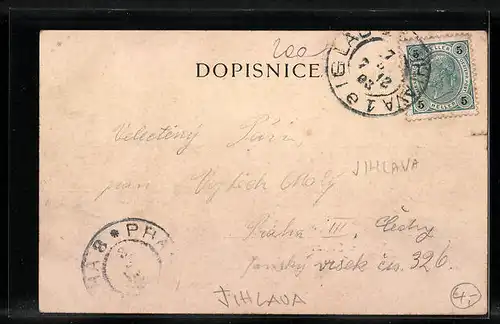 200
DOPISNICE.
IGLAU
JIHLAVA 1
7
7 12
03
5 5
5 HELLER 5
Velectěný Pán
pan Vojtěch Malý
JIHLAVA
Praha III, Čechy
Janský vršek čís. 326.
PRAHA 8 * PRA
JIHLAVA
4,-